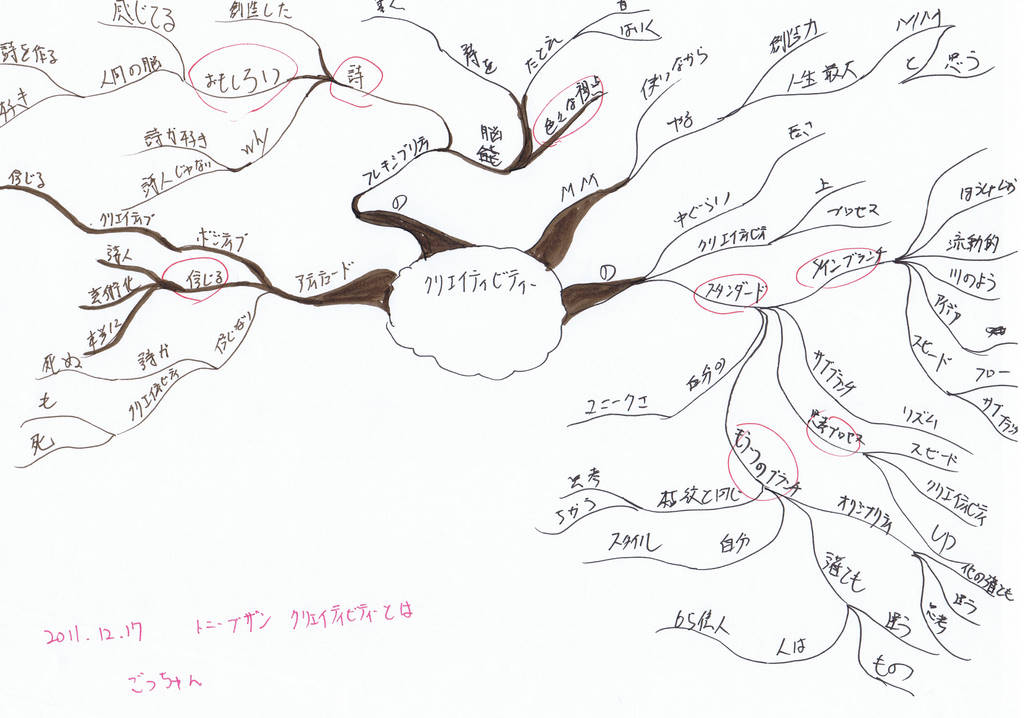 クリエイティビティー
フレキシブリティ
詩
おもしろい
創造した
感じてる
人間の脳
詩を作る
好き
why
詩が好き
詩人じゃない
脳
詩を
たとえ
はいく
色々な視点
MM
使いながら
やる
創造力
人生最大
MM
と
思う
①
中ぐらい
クリエイティビティ
上
プロセス
スタンダード
メインブランチ
流動的
川のよう
スピード
フロー
サブブランチ
サブブランチ
リズム
スピード
思考プロセス
クリエイティビティ
自分の
ユニークさ
もう1つのブランチ
指紋と同じ
思考
ちがう
自分
スタイル
オリジナリティ
他の誰でも
思う
思考
誰でも
思う
もの
人は
65億人
アティテュード
ポジティブ
クリエイティブ
信じる
信じる
詩人
芸術化
本当に
信じない
詩が
死ぬ
クリエイティビティ
も
死
2011.12.17 トニーブザン クリエイティビティーとは
ごっちゃん